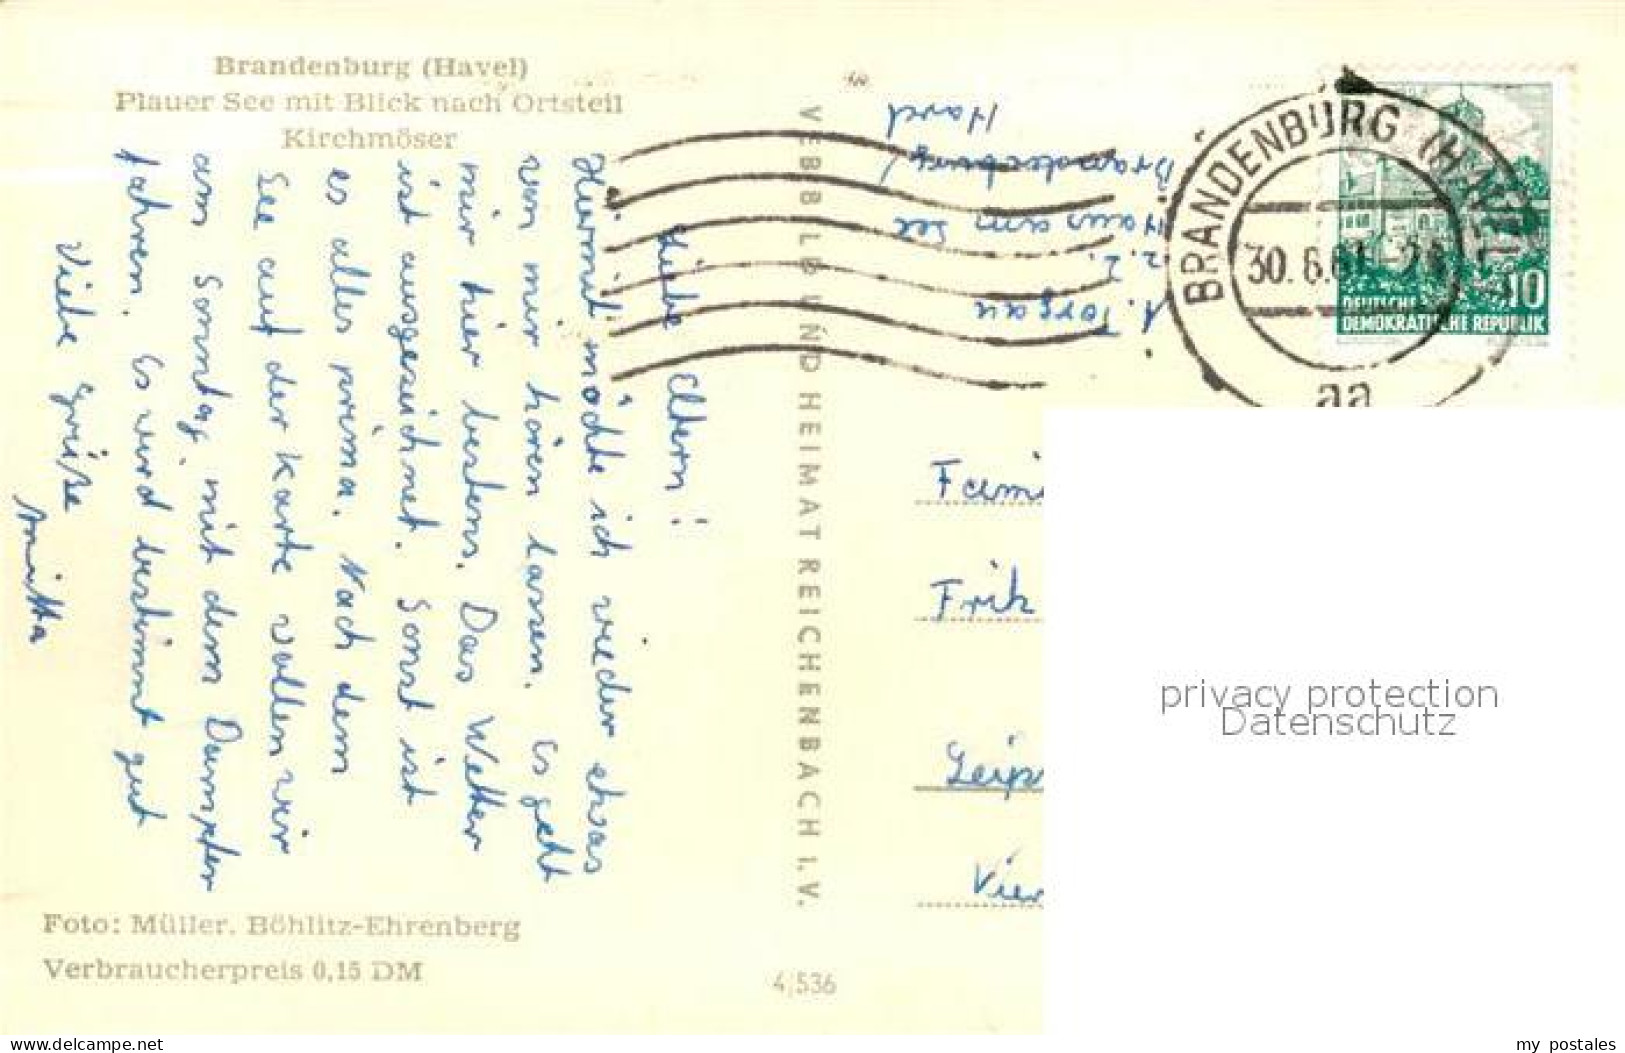 Brandenburg (Havel)
Plauer See mit Blick nach Ortsteil
Kirchmöser
Liebe Eltern!
Hiermit möchte ich wieder etwas
von mir hören lassen. Es geht
mir hier bestens. Das Wetter
ist ausgezeichnet. Sonst ist
es alles prima. Nach dem
See auf der Karte wollen wir
am Sonntag mit dem Dampfer
fahren. Es wird bestimmt gut
Viele Grüße
Foto: Müller, Böhlitz-Ehrenberg
Verbraucherpreis 0,15 DM
VEB BILD UND HEIMAT REICHENBACH I. V.
4/536
A. Torgau
z. Z.
Haus am See
Brandenburg/
Havel
BRANDENBURG (HAVEL)
30. 6. 61
aa
10
DEUTSCHE
DEMOKRATISCHE REPUBLIK
Fami
Fritz
Leipz
Vier
privacy protection
Datenschutz
www.delcampe.net
my_postales